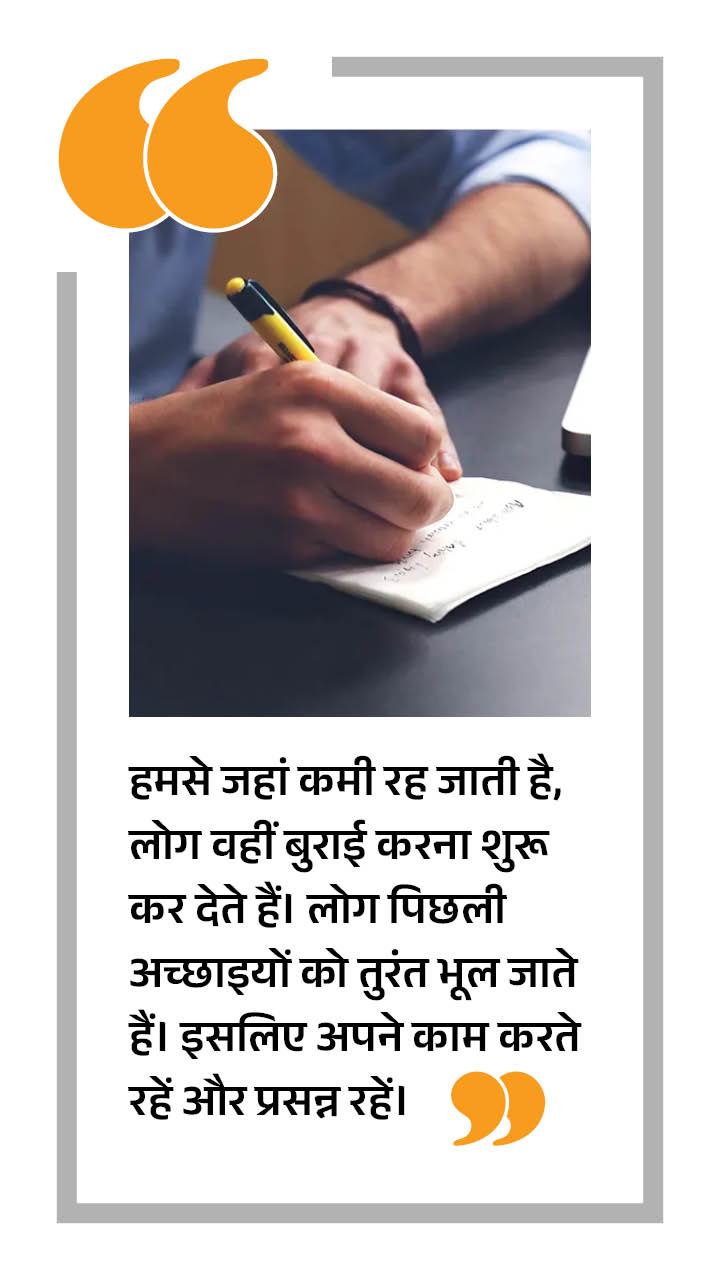 हमसे जहां कमी रह जाती है,
लोग वहीं बुराई करना शुरू
कर देते हैं। लोग पिछली
अच्छाइयों को तुरंत भूल जाते
हैं। इसलिए अपने काम करते
रहें और प्रसन्न रहें।